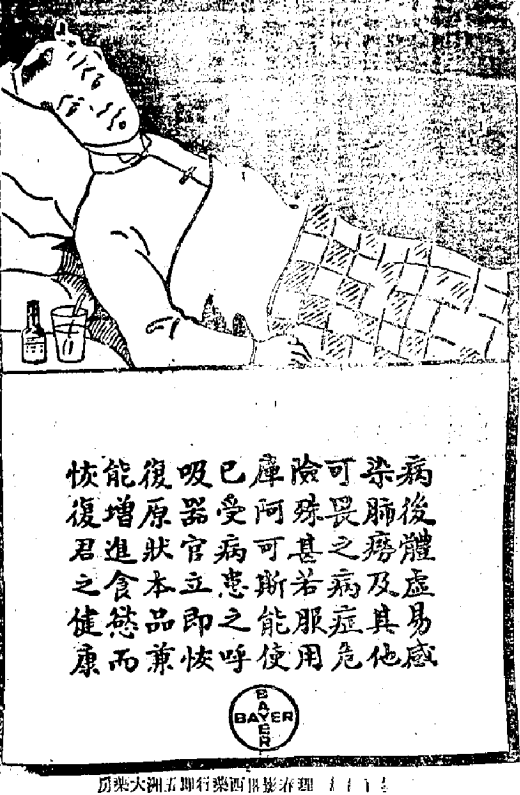 病後體虛易感
染肺癆及其他
可畏之病症危
險殊甚若服用
庫阿可斯能使
已受病患之呼
吸器官立即恢
復原狀本品兼
能增進食慾而
恢復君之健康
BAYER
BAYER
西藥行即五洲大藥房